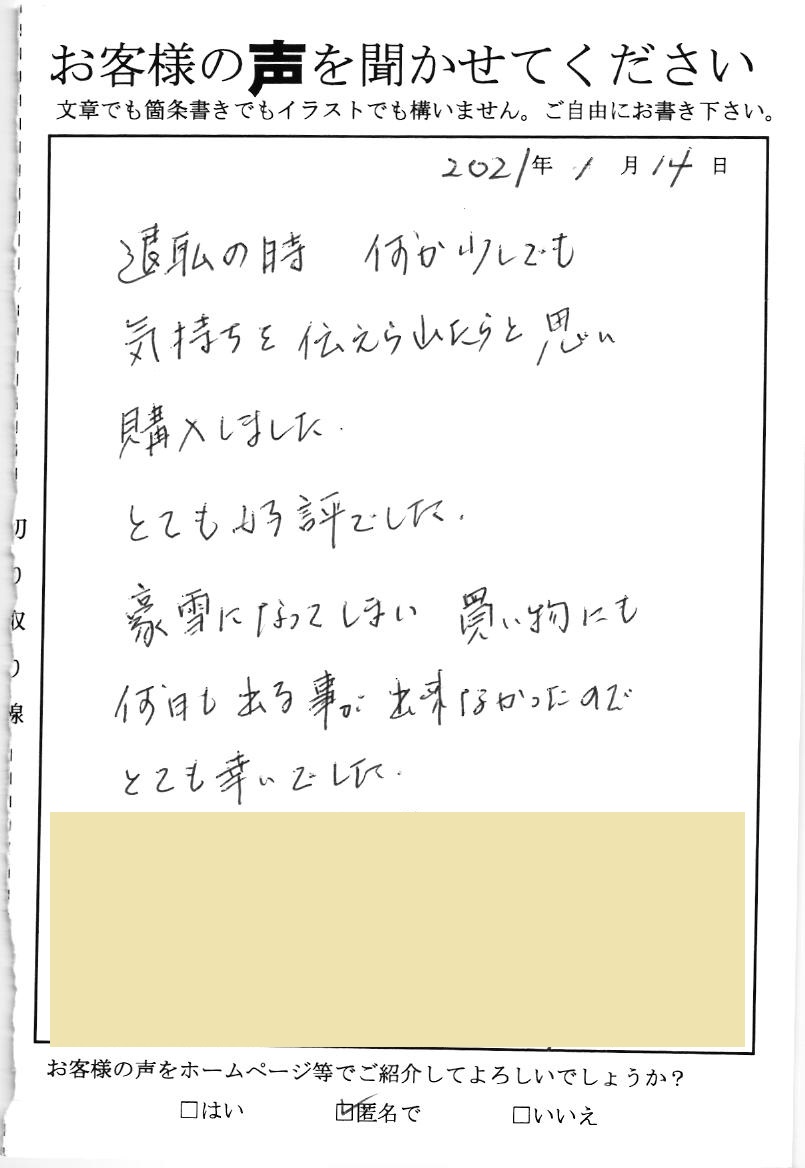 お客様の声を聞かせてください
文章でも箇条書きでもイラストでも構いません。ご自由にお書き下さい。
2021年 1月14日
退転の時 何か少しでも
気持ちを伝えられたらと思い
購入しました.
とても好評でした.
豪雪になってしまい 買い物にも
何日も出る事が出来なかったので
とても幸いでした.
切り取り線
お客様の声をホームページ等でご紹介してよろしいでしょうか？
□はい ☑匿名で □いいえ